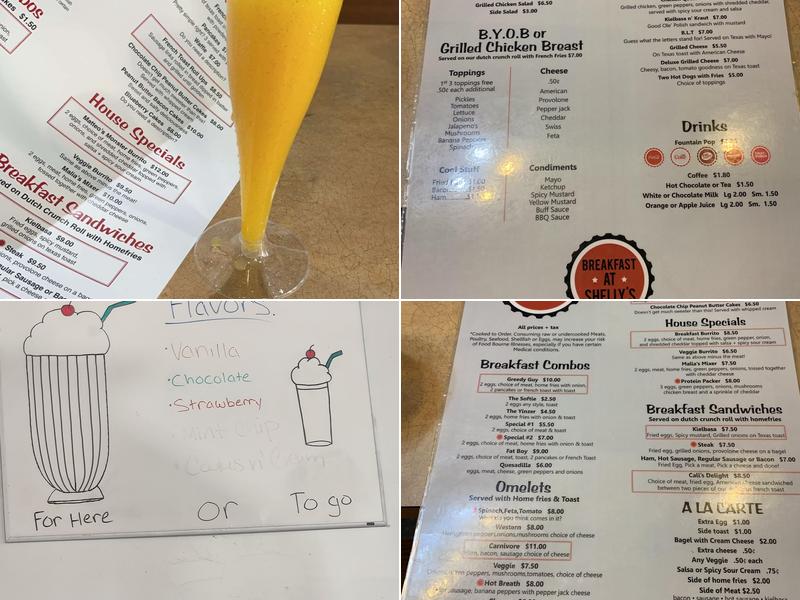 French Toast Roll Ups $8.50
Chocolate Chip Peanut Butter Cakes $8.00
Peanut Butter Bacon Cakes $10.00
Sweet and salty delicious
Blueberry Cakes $8.00
Do you need a description?
House Specials
Matteo's Monster Burrito $12.00
Veggie Burrito $9.50
Same as above minus the meat!
Malia's Mixer $10.00
2 eggs, meat, home fries, green peppers, onions,
tossed together with cheddar cheese
Breakfast Sandwiches
Served on Dutch Crunch Roll with Homefries
Kielbasa $9.00
Fried eggs, spicy mustard,
grilled onions on texas toast
Steak $9.50
Grilled Chicken Salad $6.50
Side Salad $3.00
B.Y.O.B or
Grilled Chicken Breast
Served on our dutch crunch roll with French Fries $7.00
Toppings
1st 3 toppings free
.50¢ each additional
Pickles
Tomatoes
Lettuce
Onions
Jalapeno's
Mushrooms
Banana Peppers
Spinach
Cool Stuff
Fried
Bacon
Ham
Cheese
.50¢
American
Provolone
Pepper jack
Cheddar
Swiss
Feta
Condiments
Mayo
Ketchup
Spicy Mustard
Yellow Mustard
Buff Sauce
BBQ Sauce
chicken, green peppers, onions with shredded cheddar,
served with spicy sour cream and salsa
Kielbasa n' Kraut $7.00
Good Ole' Polish sandwich with mustard
B.L.T $7.00
Guess what the letters stand for! Served on Texas with Mayo!
Grilled Cheese $5.50
On Texas toast with American Cheese
Deluxe Grilled Cheese $7.00
Cheesy, bacon, tomato goodness on Texas toast
Two Hot Dogs with Fries $5.00
Choice of toppings
Drinks
Fountain Pop
Coffee $1.80
Hot Chocolate or Tea $1.50
White or Chocolate Milk Lg 2.00 Sm. 1.50
Orange or Apple Juice Lg 2.00 Sm. 1.50
BREAKFAST
AT
SHELLY'S
Flavors:
·Vanilla
·Chocolate
·Strawberry
·Mint Chip
For Here
Or
To go
All prices + tax
*Cooked to Order. Consuming raw or undercooked Meats,
Poultry, Seafood, Shellfish or Eggs, may increase your risk
of Food Bourne Illnesses, especially if you have certain
Medical conditions.
Breakfast Combos
Greedy Guy $10.00
2 eggs, choice of meat, home fries with onion,
2 pancakes or french toast with toast
The Softie $2.50
2 eggs any style, toast
The Yinzer $4.50
2 eggs, home fries with onion & toast
Special #1 $5.50
2 eggs, choice of meat & toast
Special #2 $7.00
2 eggs, choice of meat, home fries with onion & toast
Fat Boy $9.00
2 eggs, choice of meat, toast, 2 pancakes or French Toast
Quesadilla $6.00
eggs, meat, cheese, green peppers and onions
Omelets
Served with Home fries & Toast
Spinach,Feta,Tomato $8.00
What do you think comes in it?
Western $8.00
Ham,green pepper,onions,mushrooms choice of cheese
Carnivore $11.00
Ham, bacon, sausage choice of cheese
Veggie $7.50
green peppers, mushrooms,tomatoes, choice of cheese
Hot Breath $8.00
sausage, banana peppers with pepper jack cheese
Chocolate Chip Peanut Butter Cakes $6.50
Doesn't get much sweeter than this! Served with whipped cream
House Specials
Breakfast Burrito $8.50
2 eggs, choice of meat, home fries, green pepper, onion,
and shredded cheddar topped with salsa + spicy sour cream
Veggie Burrito $6.50
Same as above minus the meat!
Malia's Mixer $7.50
2 eggs, meat, home fries, green peppers, onions, tossed together
with cheddar cheese
Protein Packer $8.00
3 eggs, green peppers, onions, mushrooms
chicken breast and a sprinkle of cheddar
Breakfast Sandwiches
served on our dutch crunch roll with homefries
Kielbasa $7.50
Fried egg, Spicy mustard, Grilled onions on Texas toast
Steak $7.50
Fried egg, grilled onions, provolone cheese on a bagel
Ham, Hot Sausage, Regular Sausage or Bacon $7.00
Fried Egg, Pick a meat, Pick a cheese and done!
Cali's Delight $8.50
Choice of meat, fried egg, American cheese sandwiched
between two pieces of our delicious french toast
A LA CARTE
Extra Egg $1.00
Side toast $1.00
Bagel with Cream Cheese $2.00
Extra cheese .50¢
Any Veggie .50¢ each
Salsa or Spicy Sour Cream .75¢
Side of home fries $2.00
Side of Meat $2.50
bacon • sausage • hot sausage • kielbasa